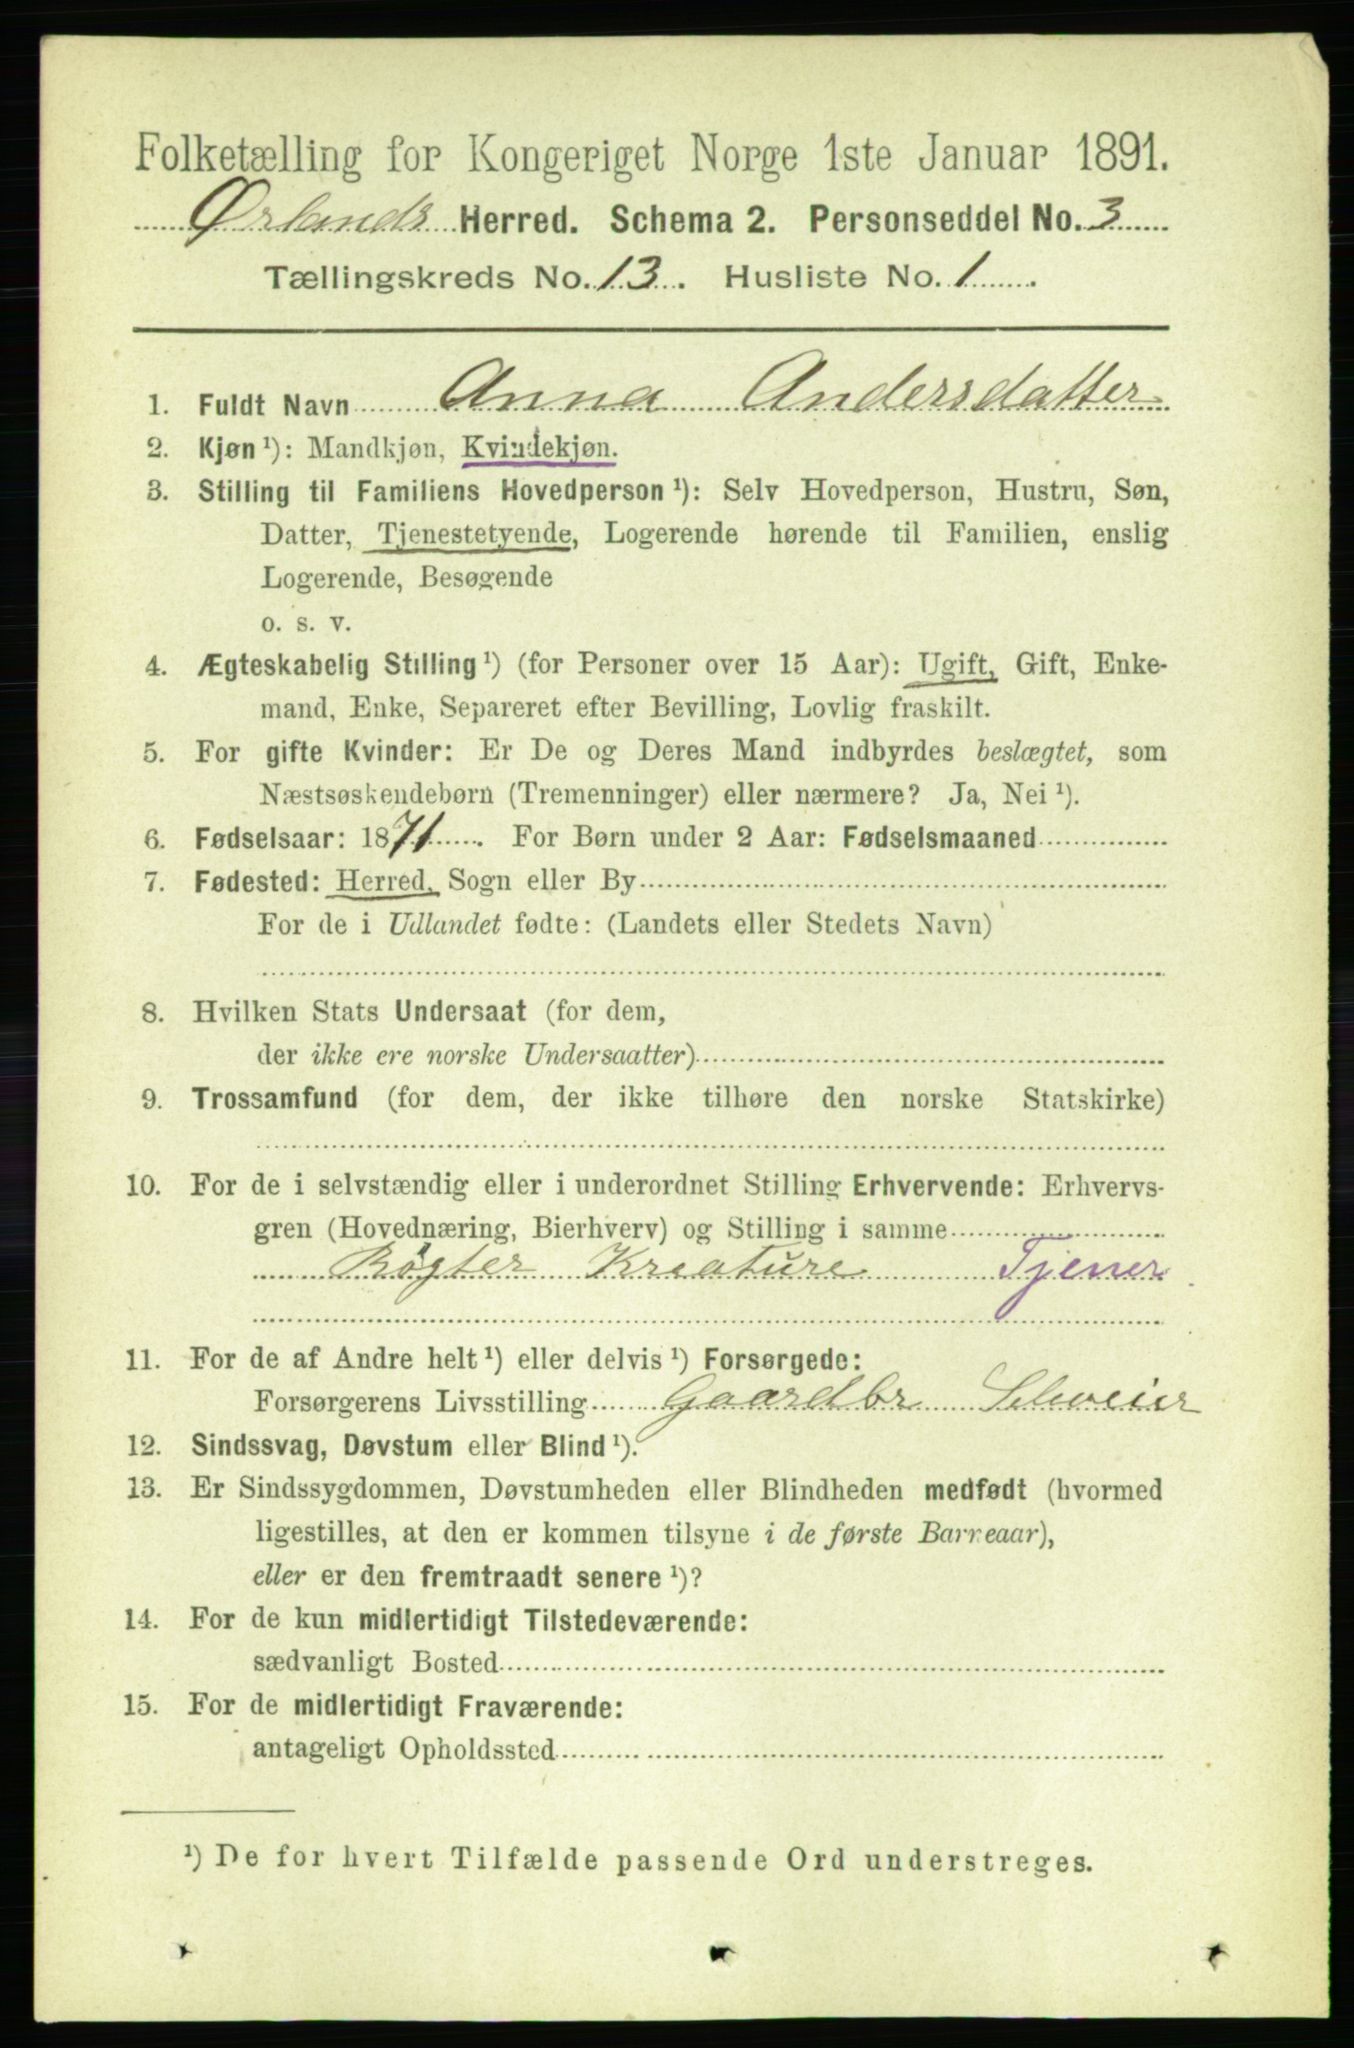 Folketælling for Kongeriget Norge 1ste Januar 1891.
Ørlands Herred. Schema 2. Personseddel No. 3
Tællingskreds No. 13. Husliste No. 1.
1. Fuldt Navn Anna Andersdatter
2. Kjøn ¹): Mandkjøn, Kvindekjøn.
3. Stilling til Familiens Hovedperson ¹): Selv Hovedperson, Hustru, Søn,
Datter, Tjenestetyende, Logerende hørende til Familien, enslig
Logerende, Besøgende
o. s. v.
4. Ægteskabelig Stilling ¹) (for Personer over 15 Aar): Ugift, Gift, Enke-
mand, Enke, Separeret efter Bevilling, Lovlig fraskilt.
5. For gifte Kvinder: Er De og Deres Mand indbyrdes beslægtet, som
Næstsøskendebørn (Tremenninger) eller nærmere? Ja, Nei ¹).
6. Fødselsaar: 1871. For Børn under 2 Aar: Fødselsmaaned
7. Fødested: Herred, Sogn eller By
For de i Udlandet fødte: (Landets eller Stedets Navn)
8. Hvilken Stats Undersaat (for dem,
der ikke ere norske Undersaatter)
9. Trossamfund (for dem, der ikke tilhøre den norske Statskirke)
10. For de i selvstændig eller i underordnet Stilling Erhvervende: Erhvervs-
gren (Hovednæring, Bierhverv) og Stilling i samme
Røgter Kreature Tjener
11. For de af Andre helt ¹) eller delvis ¹) Forsørgede:
Forsørgerens Livsstilling Gaardbr
12. Sindssvag, Døvstum eller Blind ¹).
13. Er Sindssygdommen, Døvstumheden eller Blindheden medfødt (hvormed
ligestilles, at den er kommen tilsyne i de første Barneaar),
eller er den fremtraadt senere ¹)?
14. For de kun midlertidigt Tilstedeværende:
sædvanligt Bosted
15. For de midlertidigt Fraværende:
antageligt Opholdssted
¹) De for hvert Tilfælde passende Ord understreges.